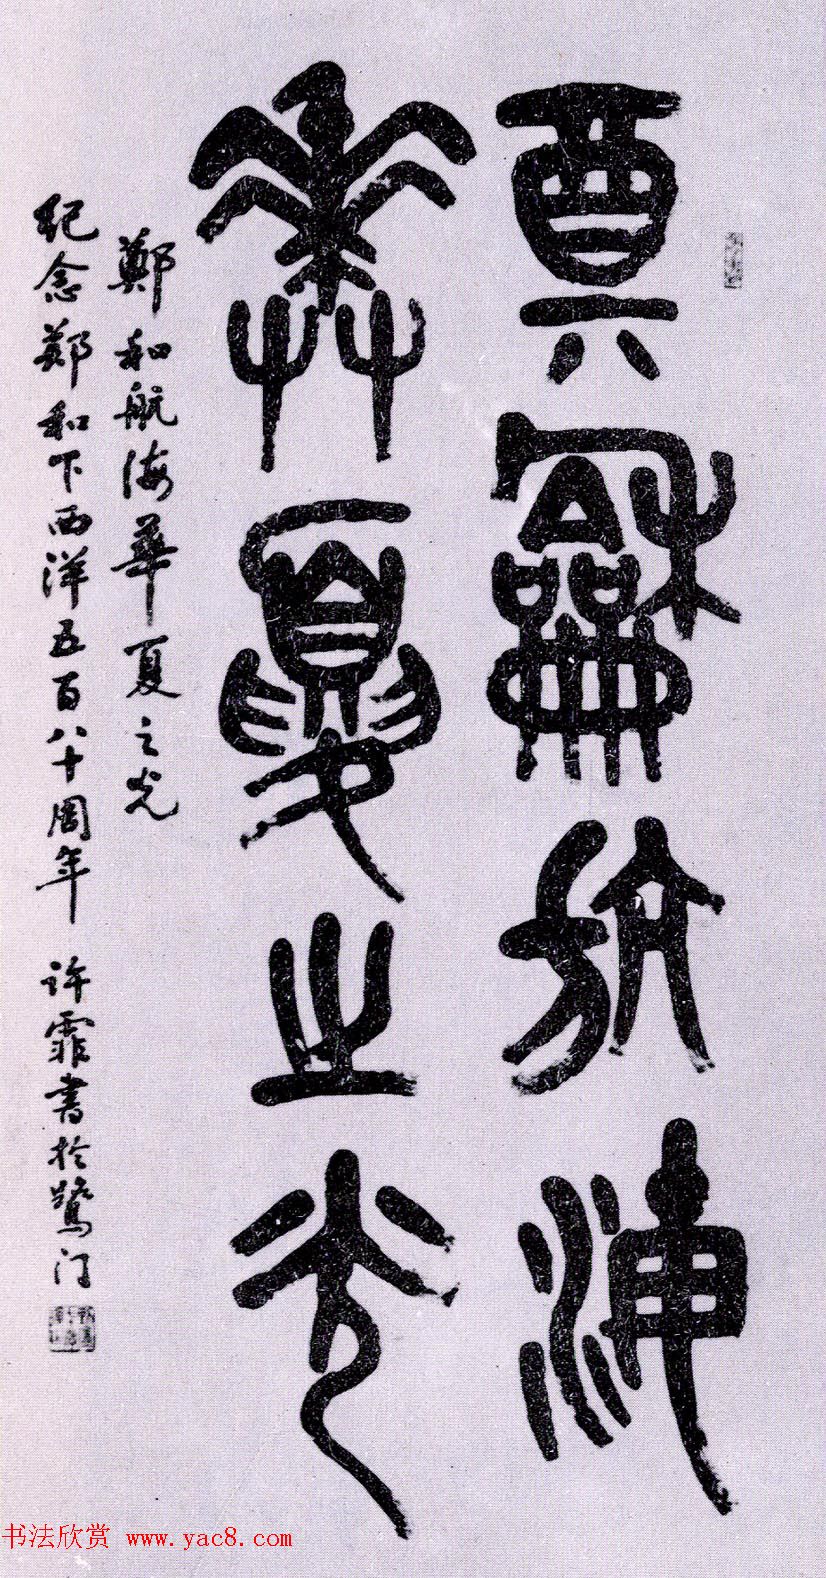 奠龢航海
華夏之光
鄭和航海華夏之光
紀念鄭和下西洋五百八十周年 许霏書於鷺门
书法欣赏 www.yac8.com